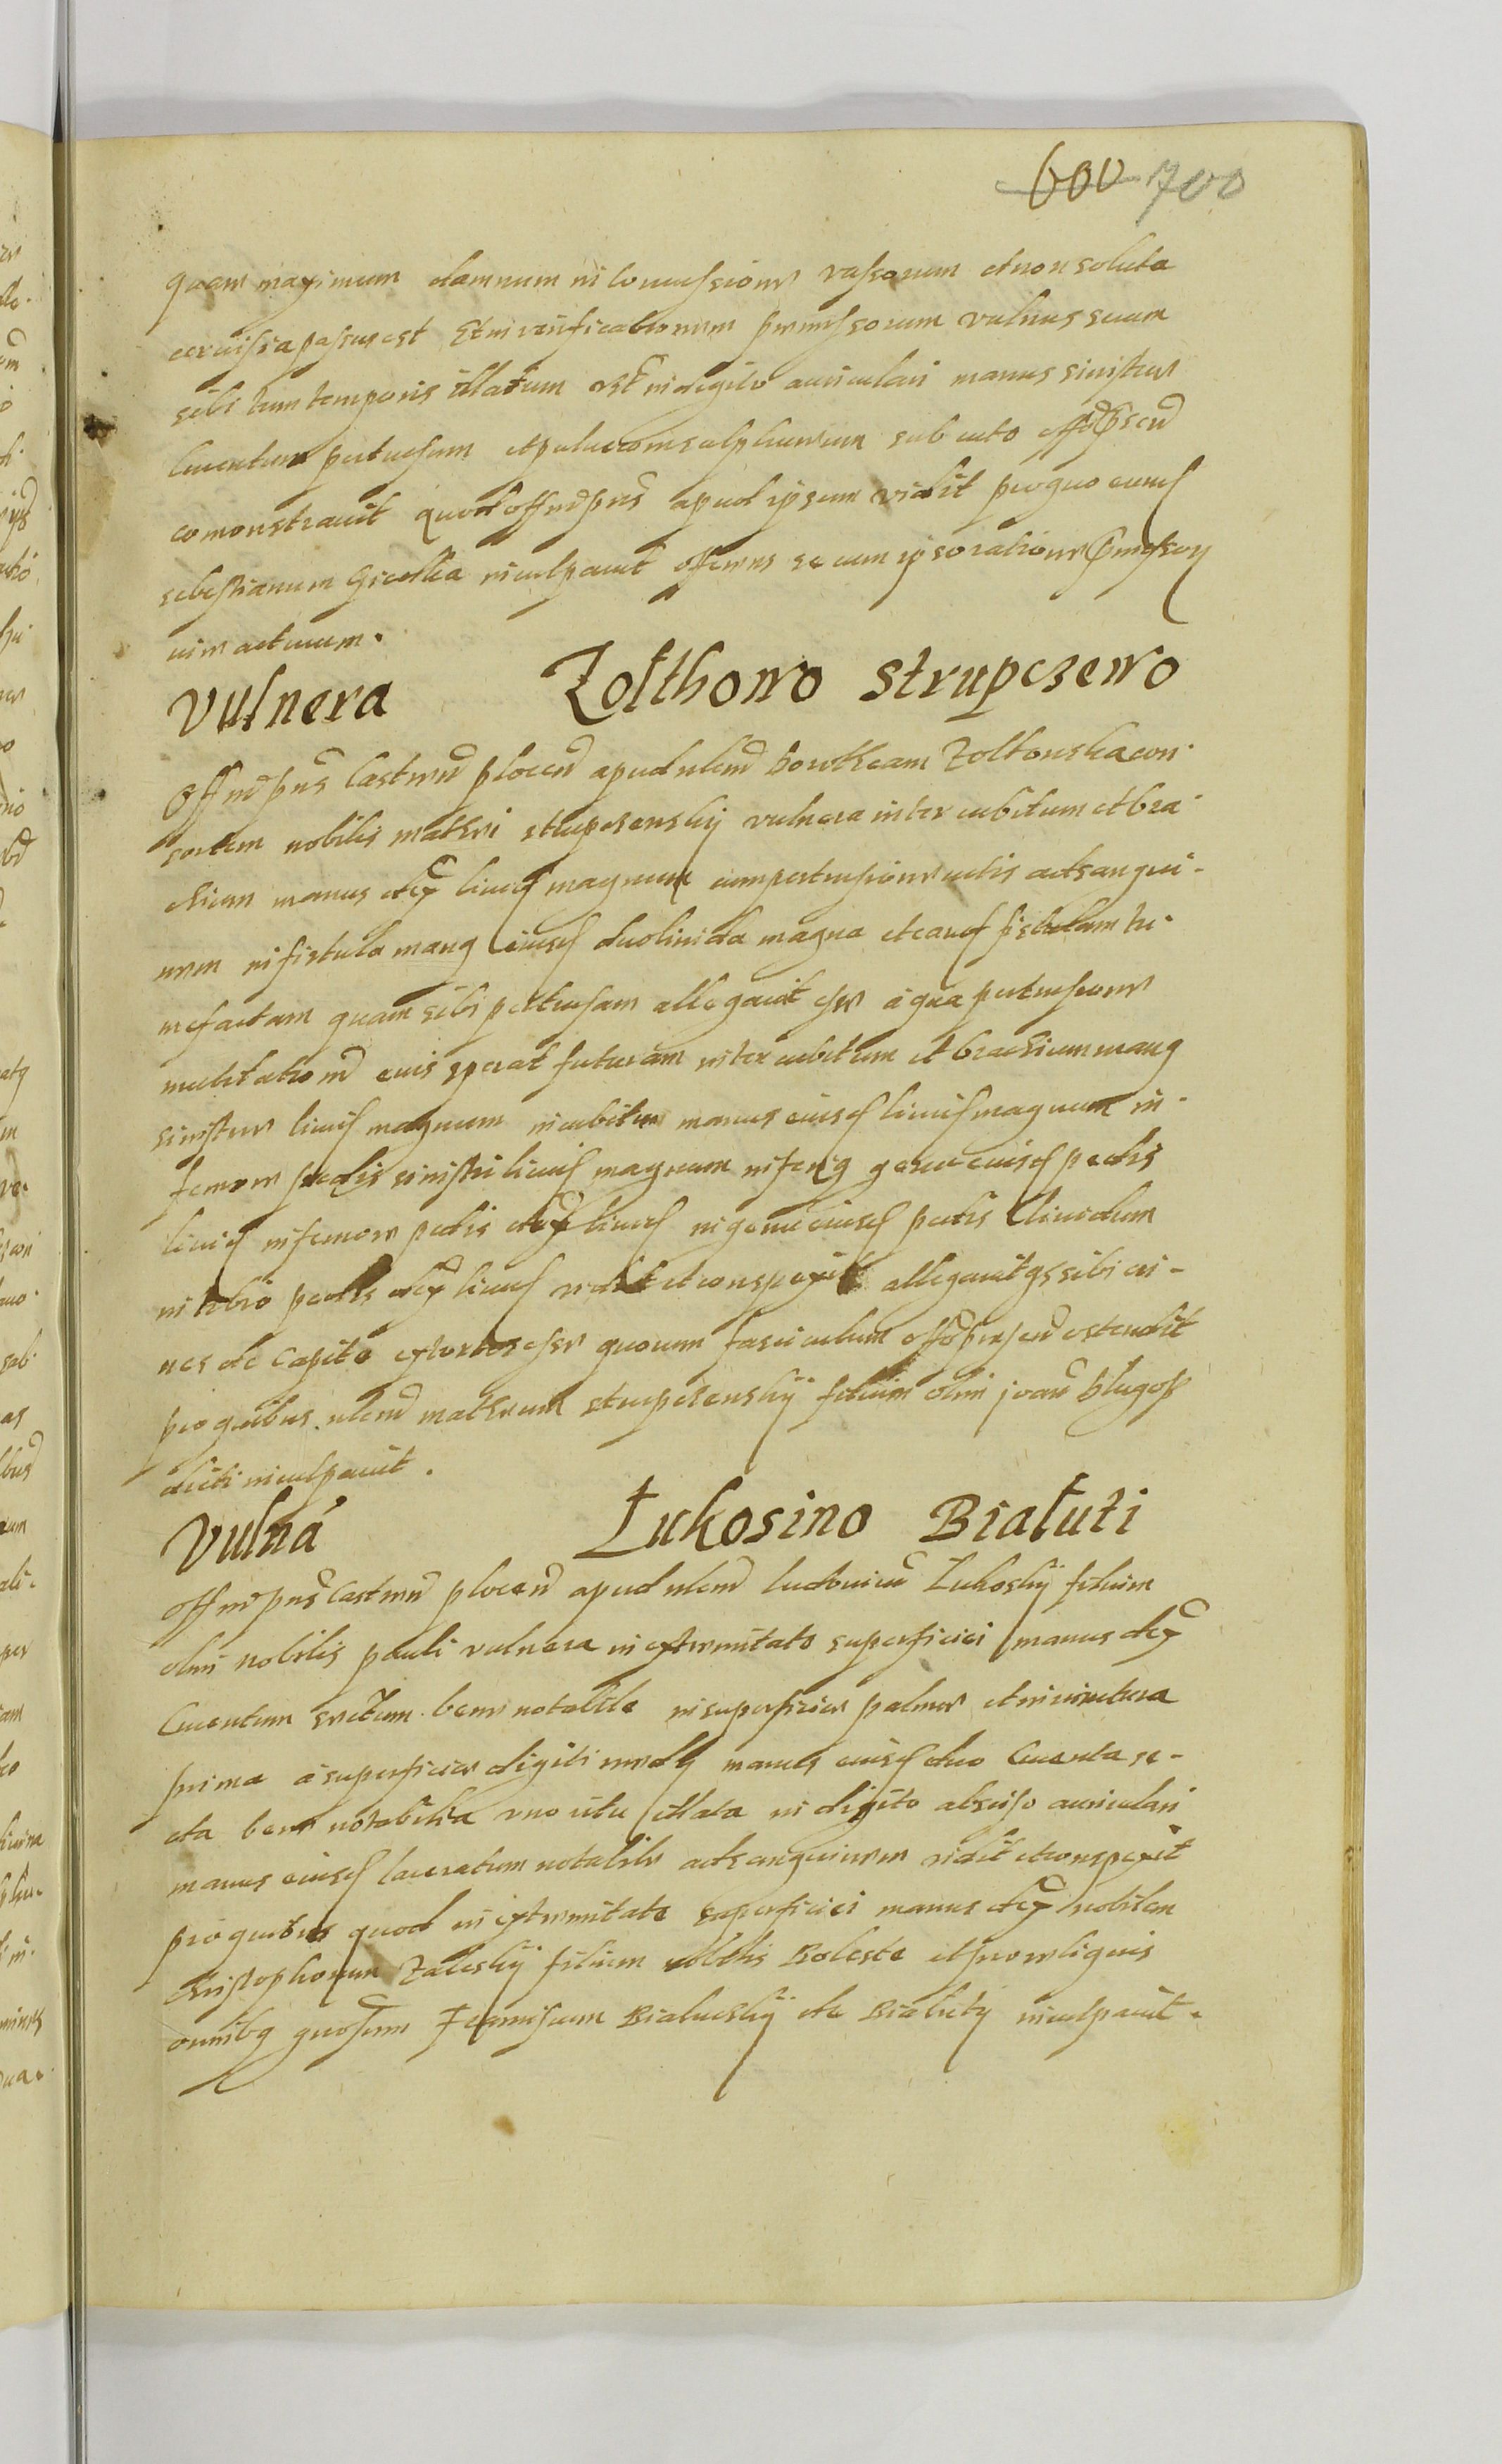 600 700
quam maximum damnum in concussione vassorum et non soluta
cervisia passus est Et in verificationem premissorum vulnus suum
sibi tum temporis illatum in digito auriculari manus sinistre
cruentum pertusum et pulverem sulphureum sub cute
comonstravit quod off apud ipsum vidit pro quo eund
sebestianum inculpavit offerens se cum ipso ratione
vim acturum.
Vulnera Zolthowo Strupczewo
Off pns Castren plocen apud nlem Zoltowska con-
sortem nobilis mathei strupczewskij vulnera inter cubitum et bra-
chium manus dex livid magnum cum pertusione cutis ad sangui-
nem in fistula manus eiusd duo livida magna et eand fistulam tu-
mefactam quam sibi pertusam allegavit esse a qua pertusione
mutilationem eius sperat futuram inter cubitum et brachium manus
sinistre livid magnum in cubitu manus eiusd livid magnum in
femore pedis sinistri livid magnum genu eiusd pedis
livid in femore pedis dex livid in genu eiusd pedis lividum
in tibio pedis dex livid vidit et conspexit allegavit qs sibi cri-
nes de capite extortos esse quorum fasciculum ostendit
pro quibus nlem matheum strupczewskij filium olim joan
dicti inculpavit.
Vulna Łukosino Białuti
Off pns Castren plocen apud nlem ludovicu Lukoskij filium
olim nobilis pauli vulnera in extremitate superficiei manus dex
Cruentum sectum bene notabile in superficie palme et in iunctura
prima a superficie digiti medij manus eiusd duo Cruenta se-
cta bene notabilia uno ictu illata in digito absciso auriculari
manus eiusd laceratum notabile ad sanguinem vidit et conspexit
pro quibus quod in extremitate superficiei manus dex nobilem
Christophorum Zaleskij filium nobilis Boleste et pro reliquis
omnibq Bialuskij de Bialuty inculpavit.